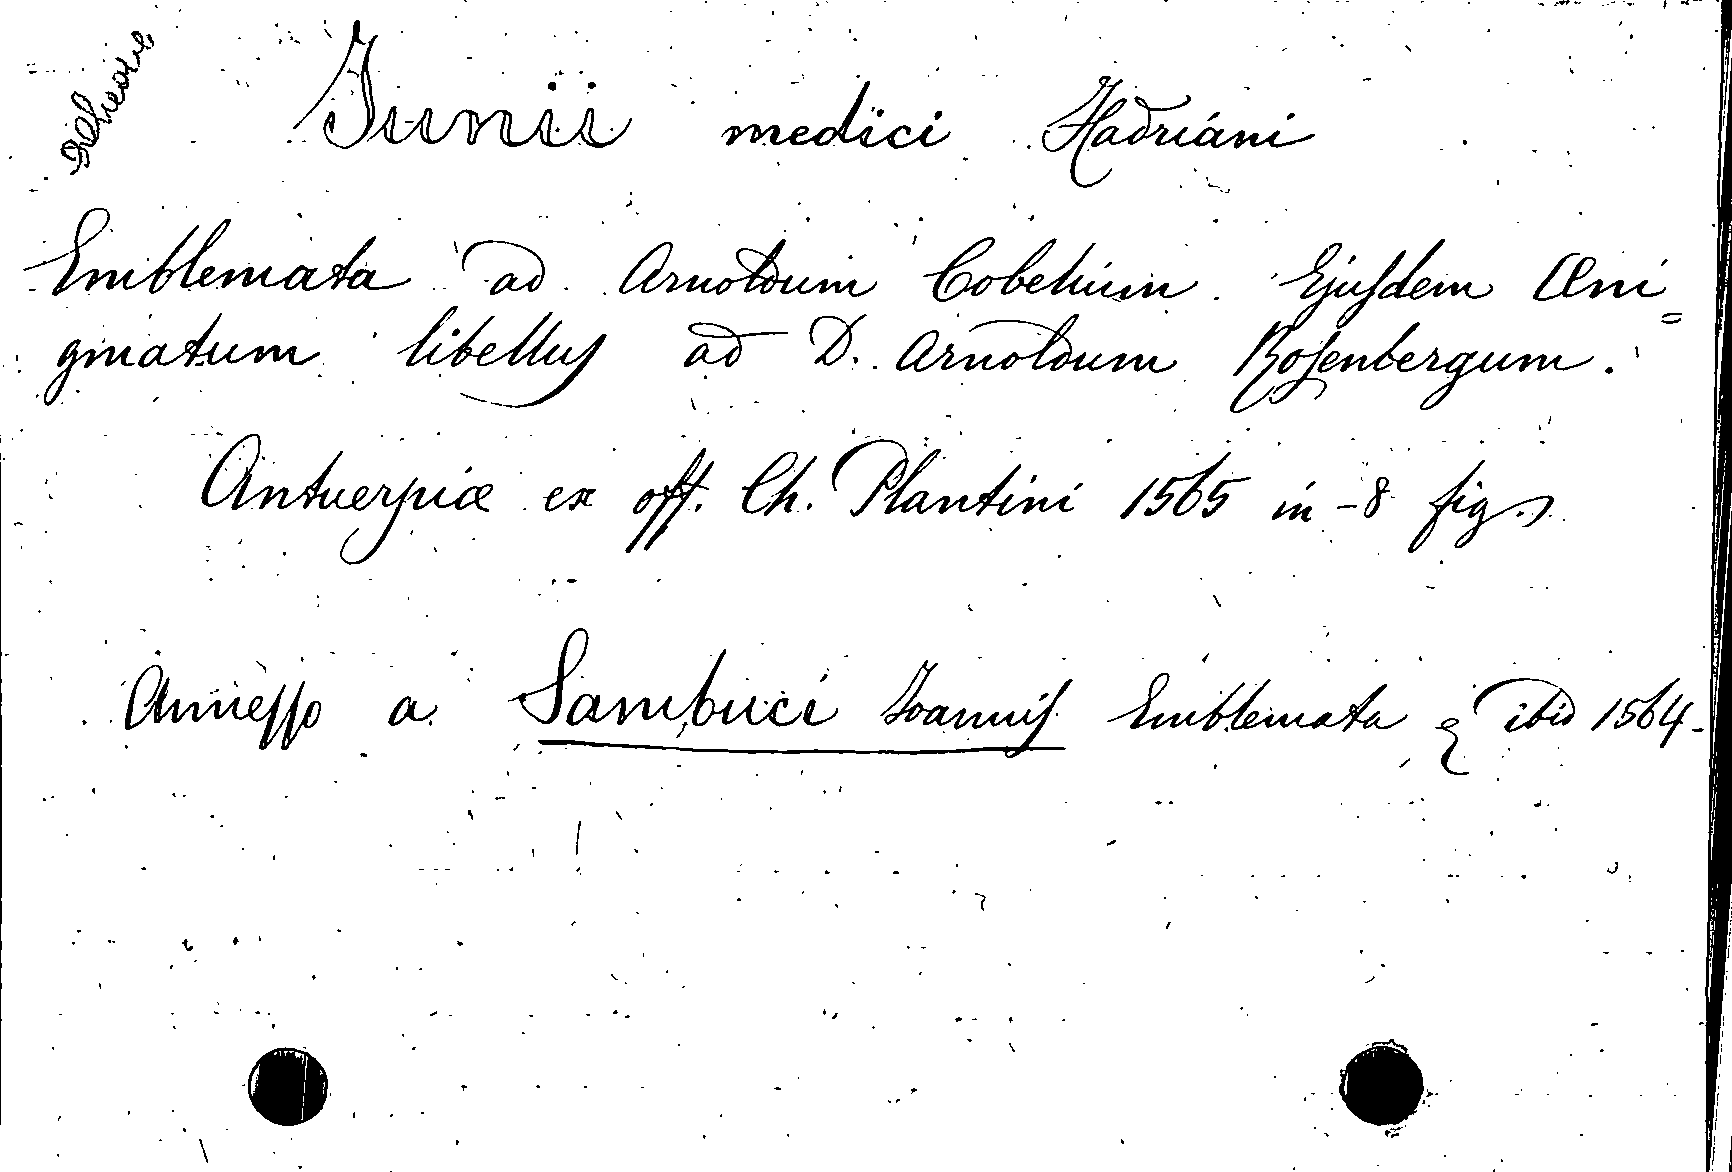 Junii medici Hadriani
Emblemata ad Arnoldum Cobelium. Ejusdem Æni=
gmatum libellus ad D. Arnoldum Rosenbergum.
Antuerpiæ ex off. Ch. Plantini 1565 in-8 fig.
Annesso a Sambuci Joannis Emblemata & ibid 1564.